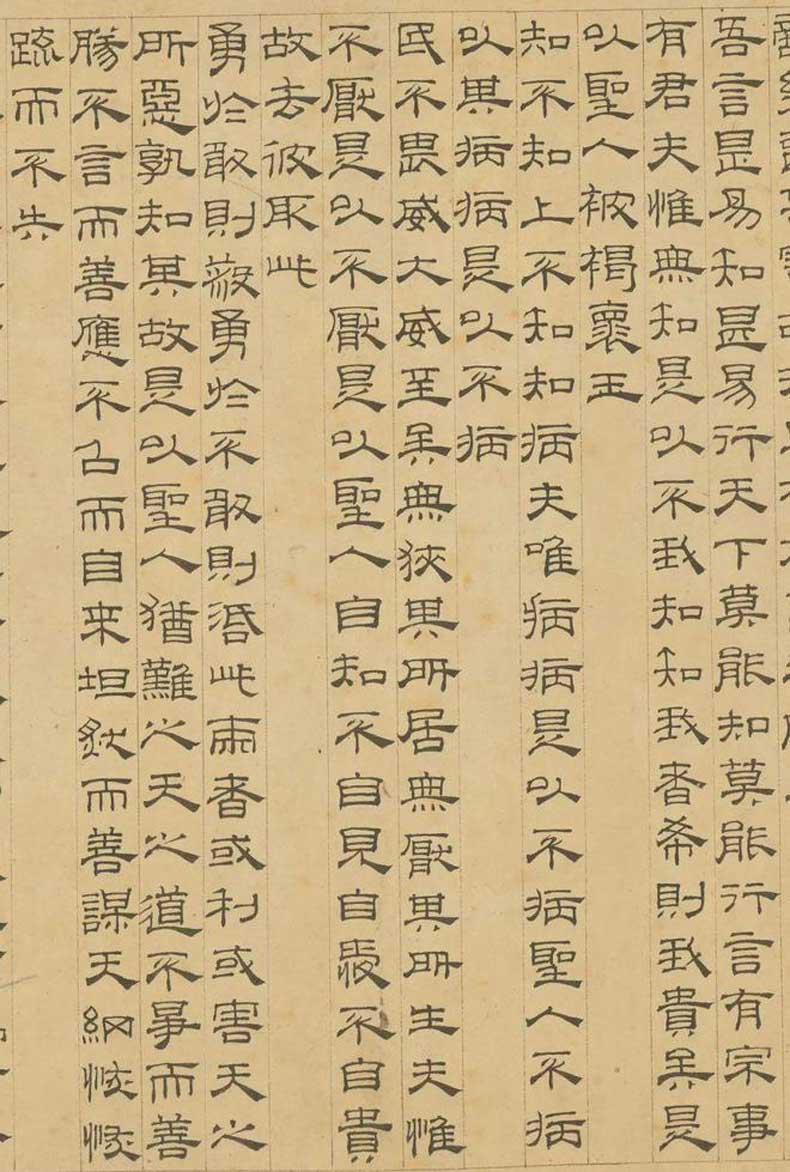 吾言甚易知甚易行天下莫能知莫能行言有宗事
有君夫惟無知是以不我知知我者希則我貴矣是
以聖人被褐褱玉
知不知上不知知病夫唯病病是以不病聖人不病
以其病病是以不病
民不畏威大威至矣無狹其所居無厭其所生夫惟
不厭是以不厭是以聖人自知不自見自愛不自貴
故去彼取此
勇於敢則殺勇於不敢則活此兩者或利或害天之
所惡孰知其故是以聖人猶難之天之道不爭而善
勝不言而善應不召而自来坦然而善謀天網恢恢
疏而不失